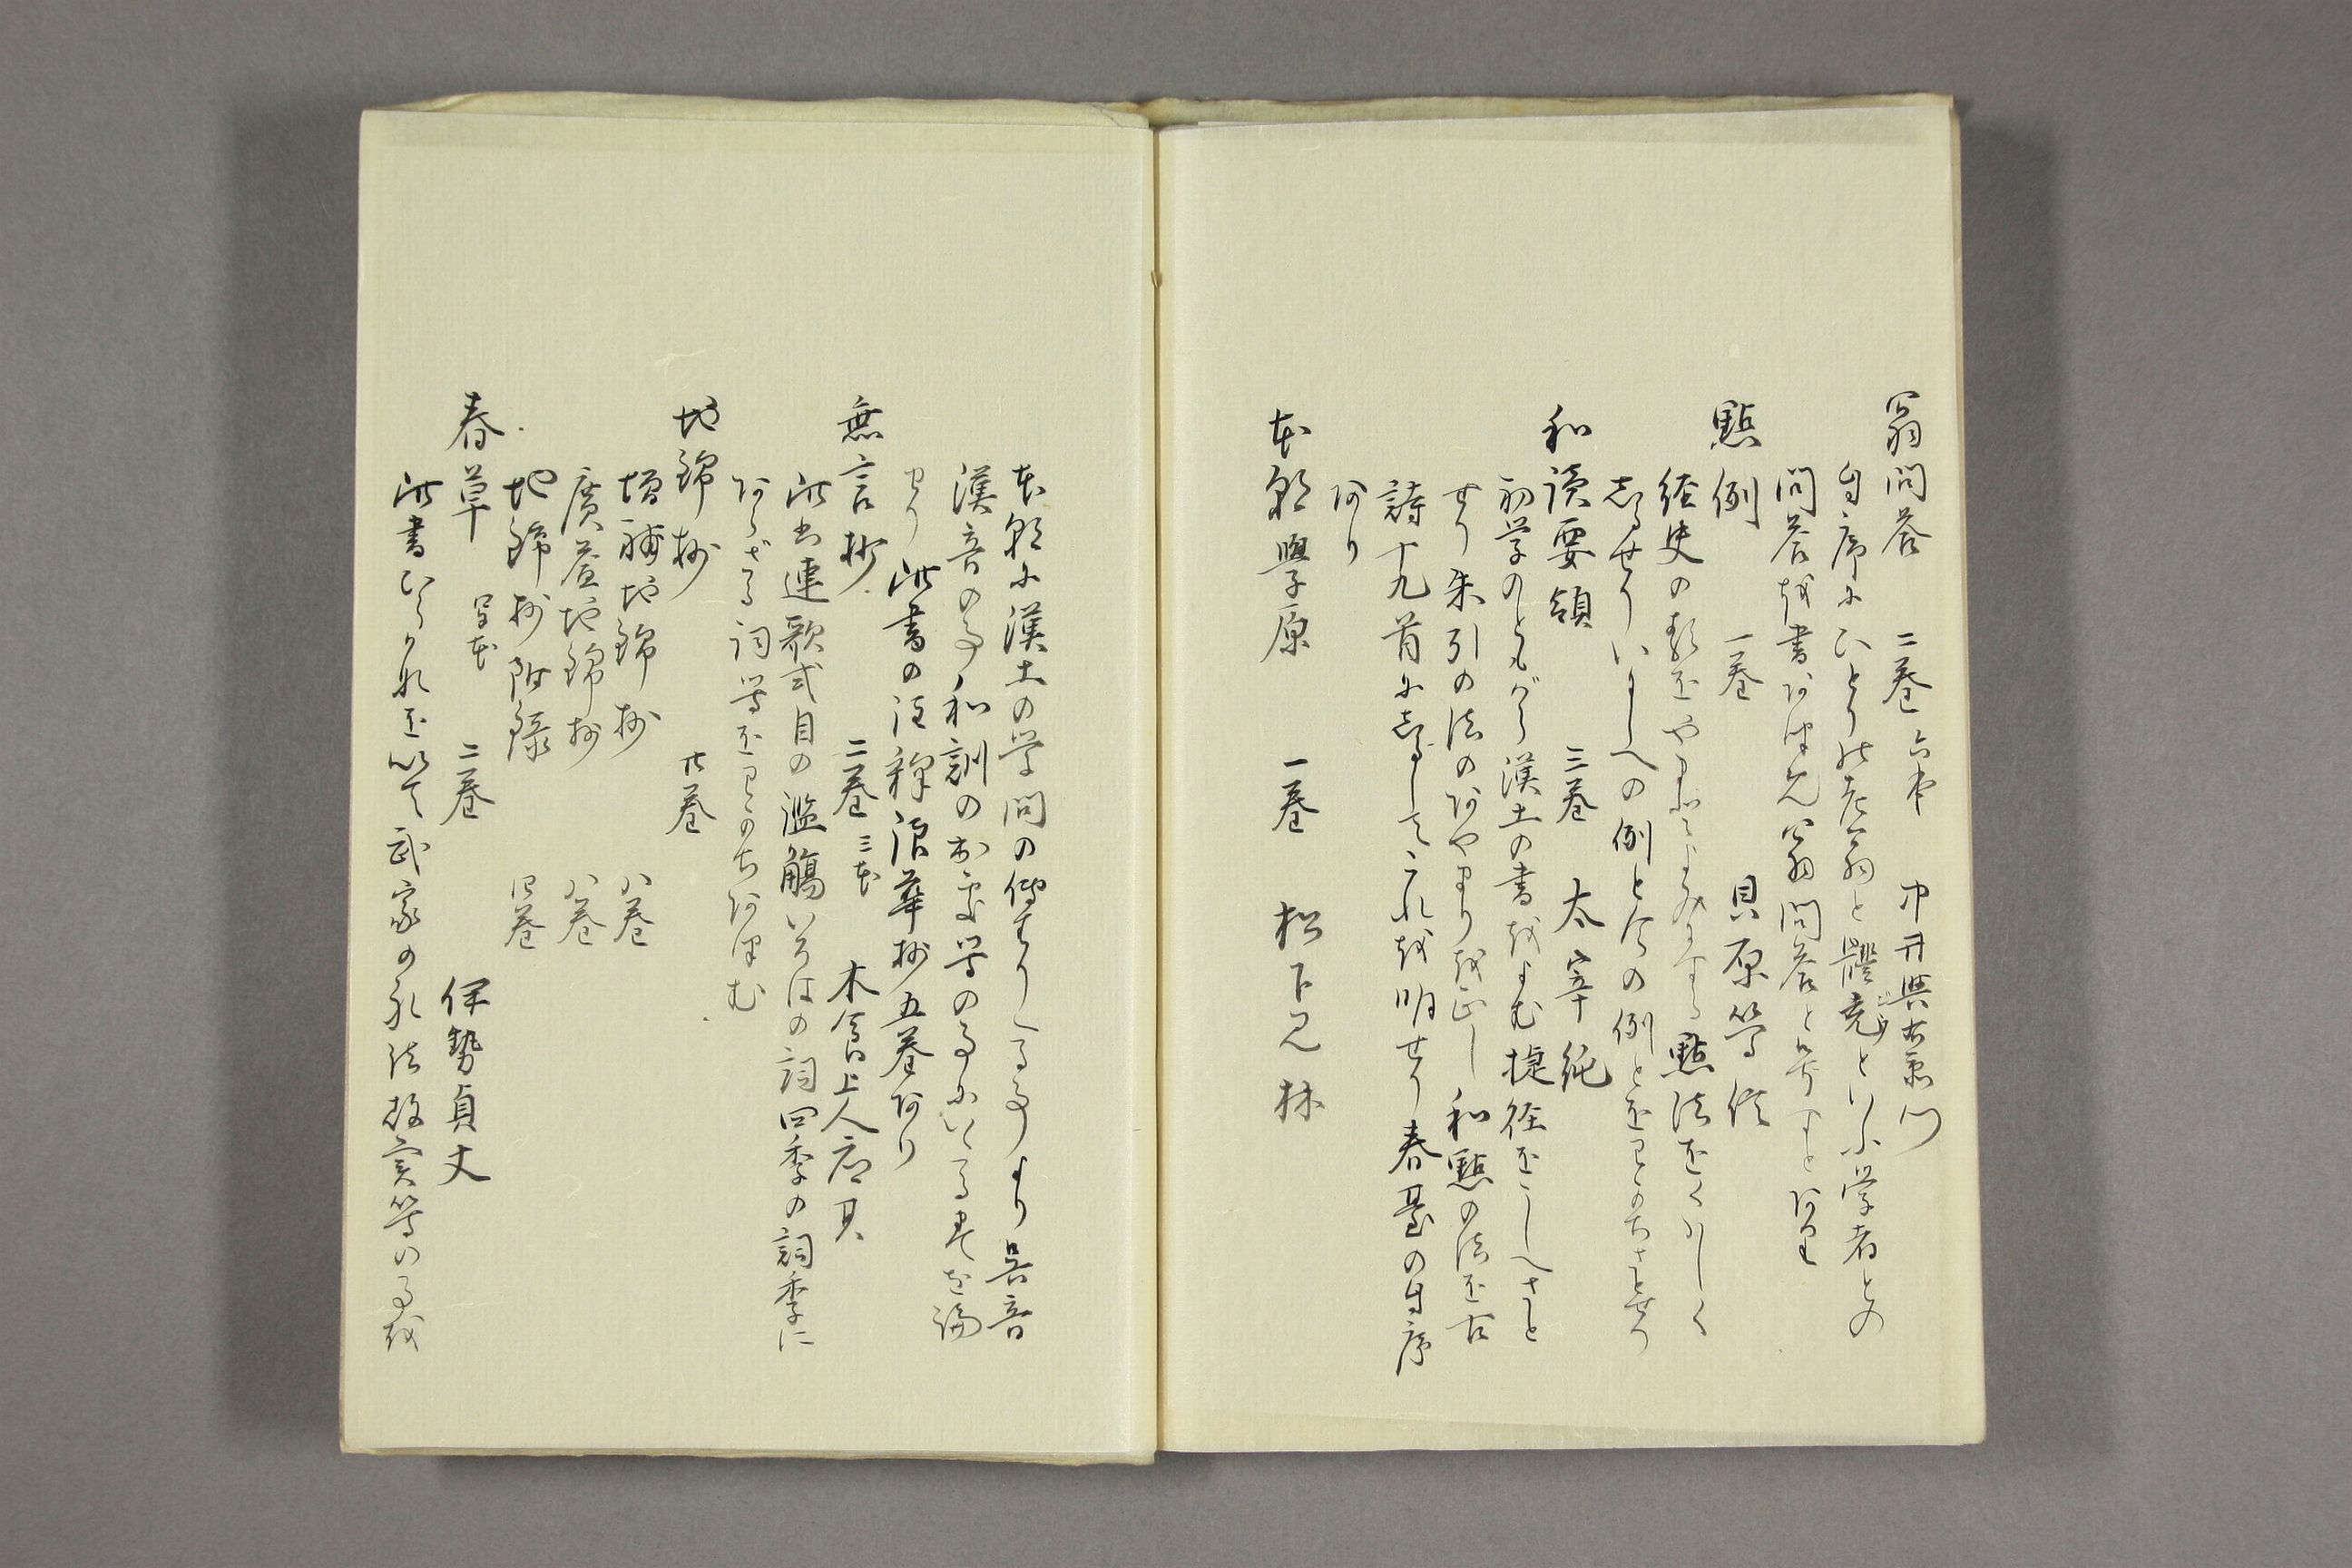 翁問答 二巻 六本 中井與右衛門
自序にひとりの老翁と體充といふ学者との
問答を書あつめ翁問答と号すとあり
點例 一巻 貝原篤信
経史の類をやすらかによみやする點法をくはしく
しるせりいにしへの例と今の例とをわかちさとせり
和讀要領 三巻 太宰純
初学のともがら漢土の書をよむ捷径をこしへさと
せり朱引の法のあやまりを正し和點の法を古
詩十九首にしるしてこれを明せり春臺の自序
あり
本朝學原 一巻 松下見林
本朝に漢土の学問の傳はりたる事より呉音
漢音の事和訓の事等の事にいたるまでを論
せり此書の注釋浪華抄五巻あり
無言抄 二巻 三本 木食上人應其
此書連歌式目の濫觴いろはの詞四季の詞季に
あらざる詞等をわかちあつむ
地錦抄 廿巻
増補地錦抄 八巻
廣益地錦抄 八巻
地錦抄附録 四巻
春草 写本 二巻 伊勢貞丈
此書ひらかなを以て武家の礼法故実等いる